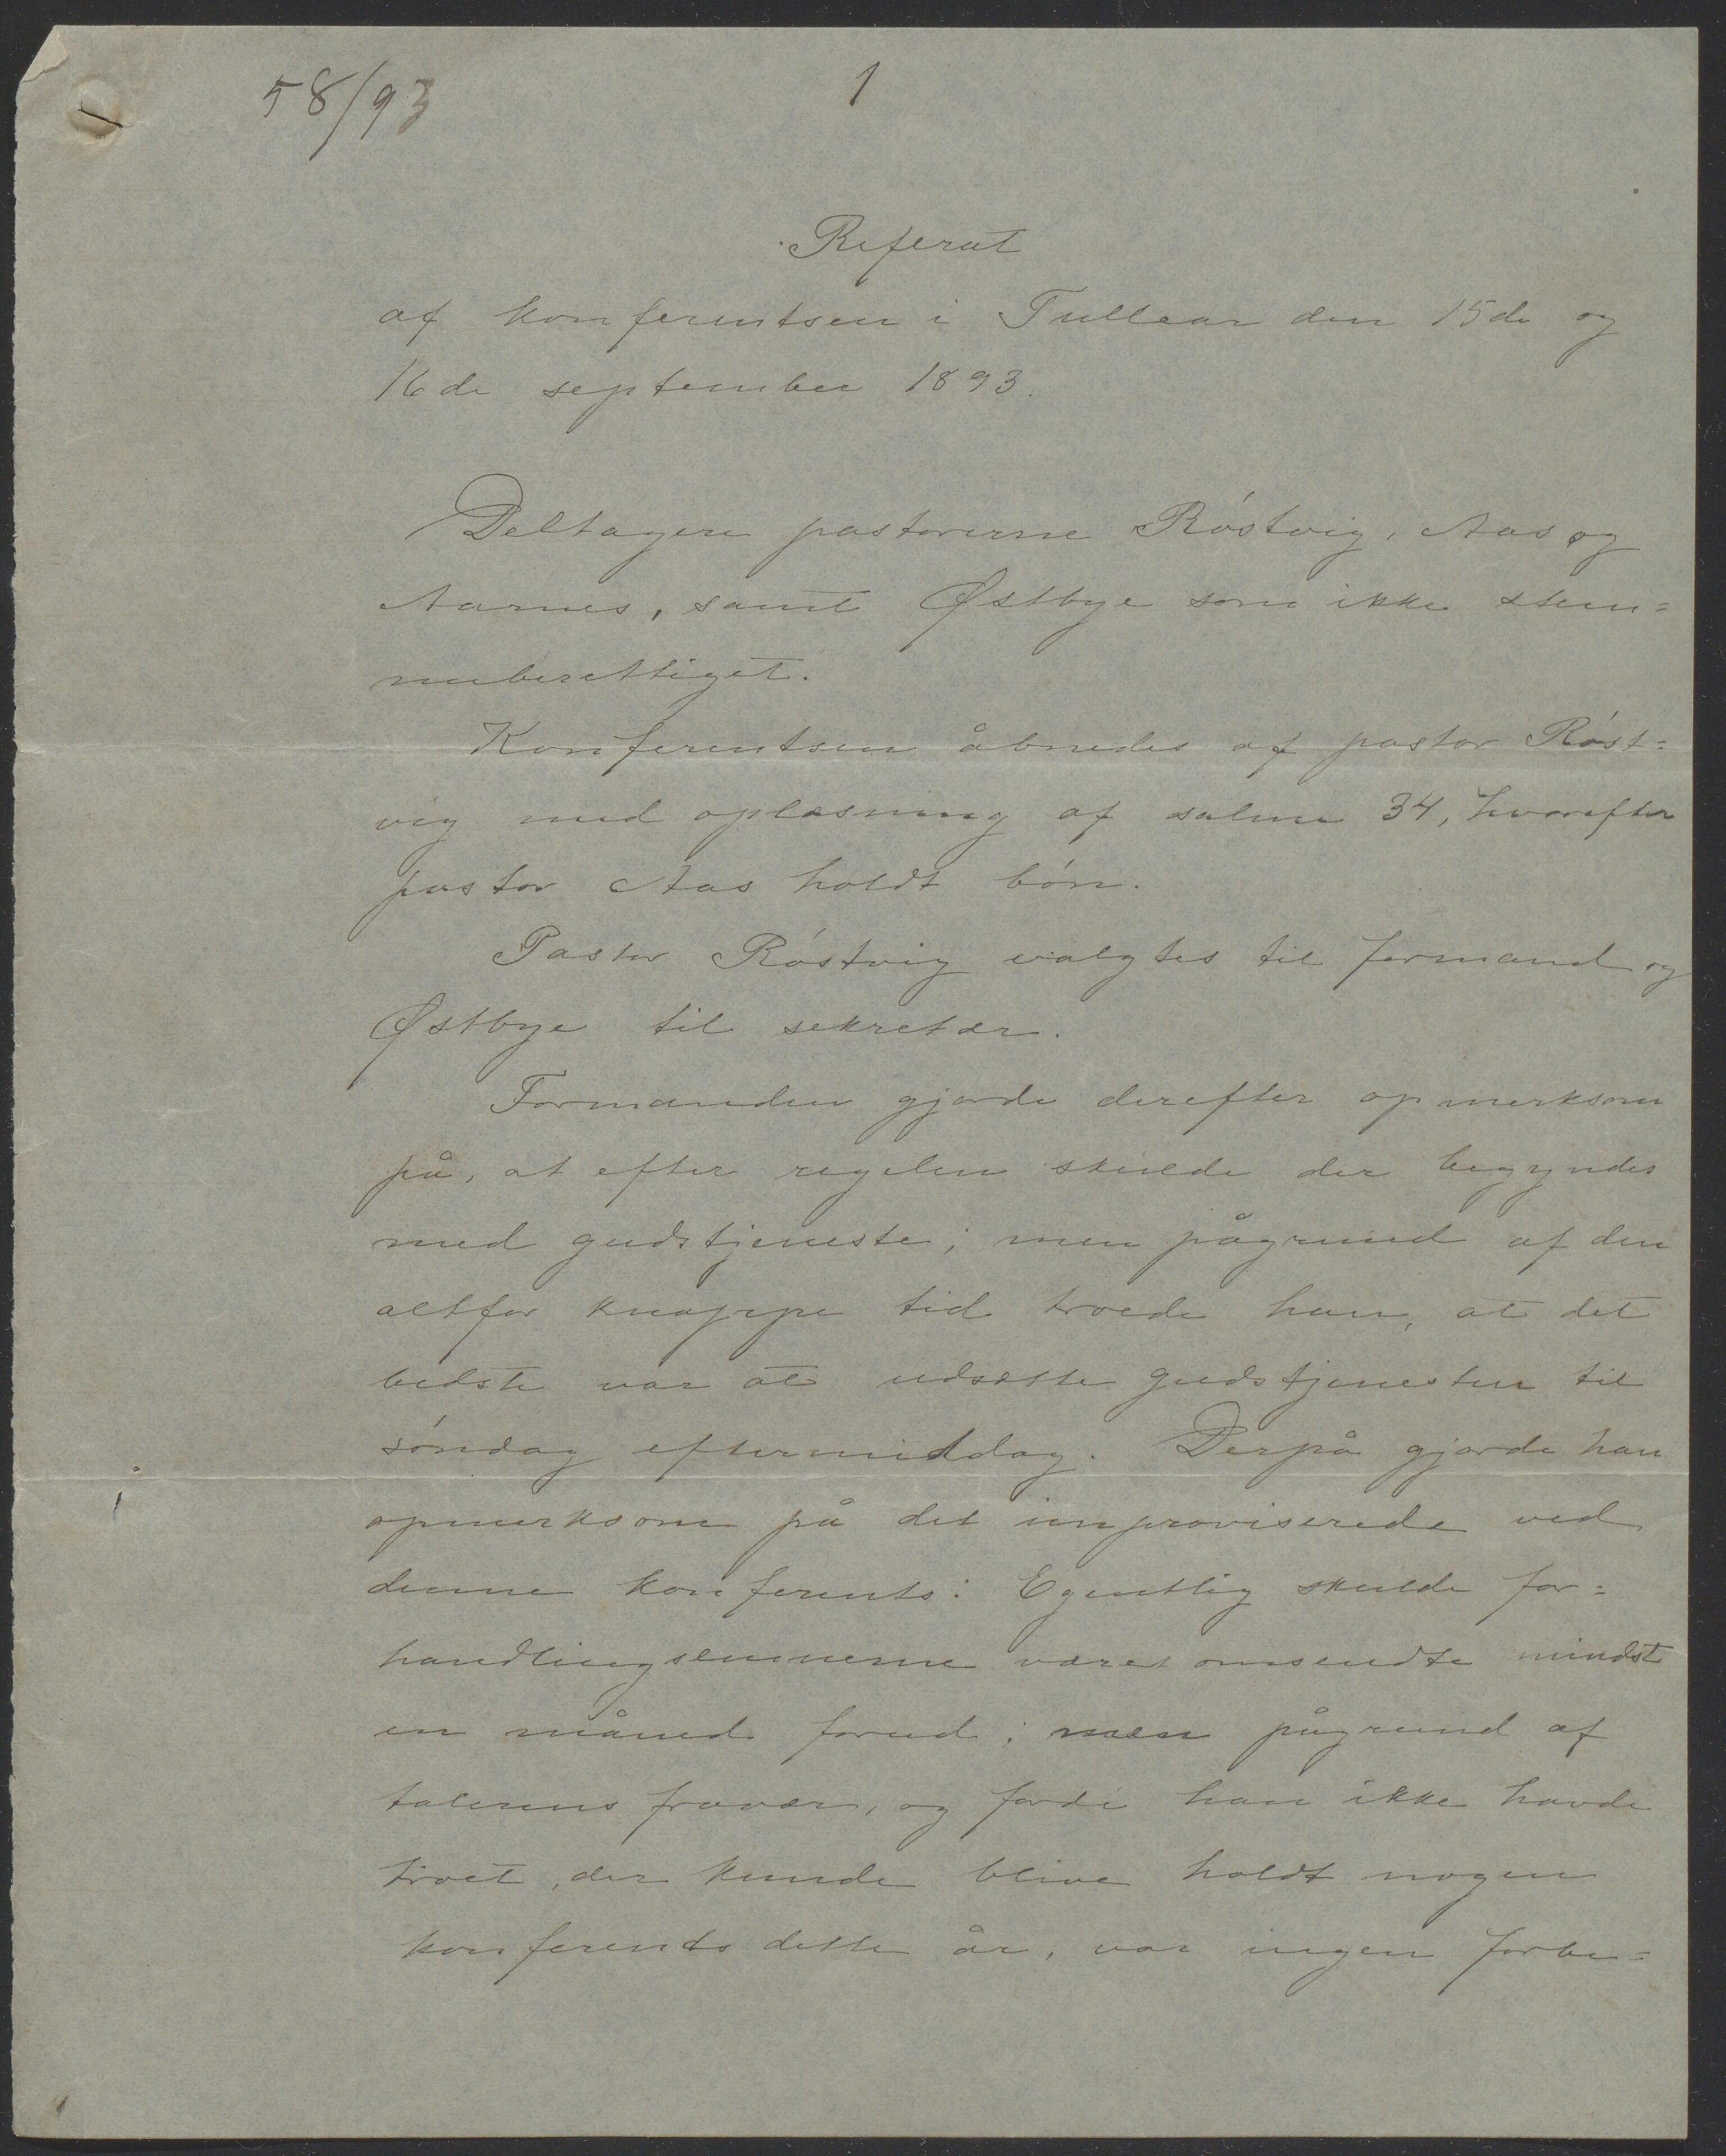 58/93
1
Referat
af konferentsen i Tullear den 15de og
16de september 1893.
Deltagere pastorerne Róstvig, Aas og
Aarnes, samt Østbye som ikke stem=
meberettiget.
Konferentsen åbnedes af pastor Róst=
vig med oplæsning af salme 34, hvorefter
pastor Aas holdt bón.
Pastor Róstvig valgtes til formand og
Østbye til sekretær.
Formanden gjorde derefter opmerksom
på, at efter regelen skulde der begyndes
med gudstjeneste; men pågrund af den
altfor knappe tid troede han, at det
bedste var at udsætte gudstjenesten til
sóndag eftermiddag. Derpå gjorde han
opmerksom på det improviserede ved
denne konferents: Egentlig skulde for=
handlingsemnerne været omsendte mindst
en måned forud; men pågrund af
talerens fravær, og fordi han ikke havde
troet, der kunde blive holdt nogen
konferents dette år, var ingen forbe=